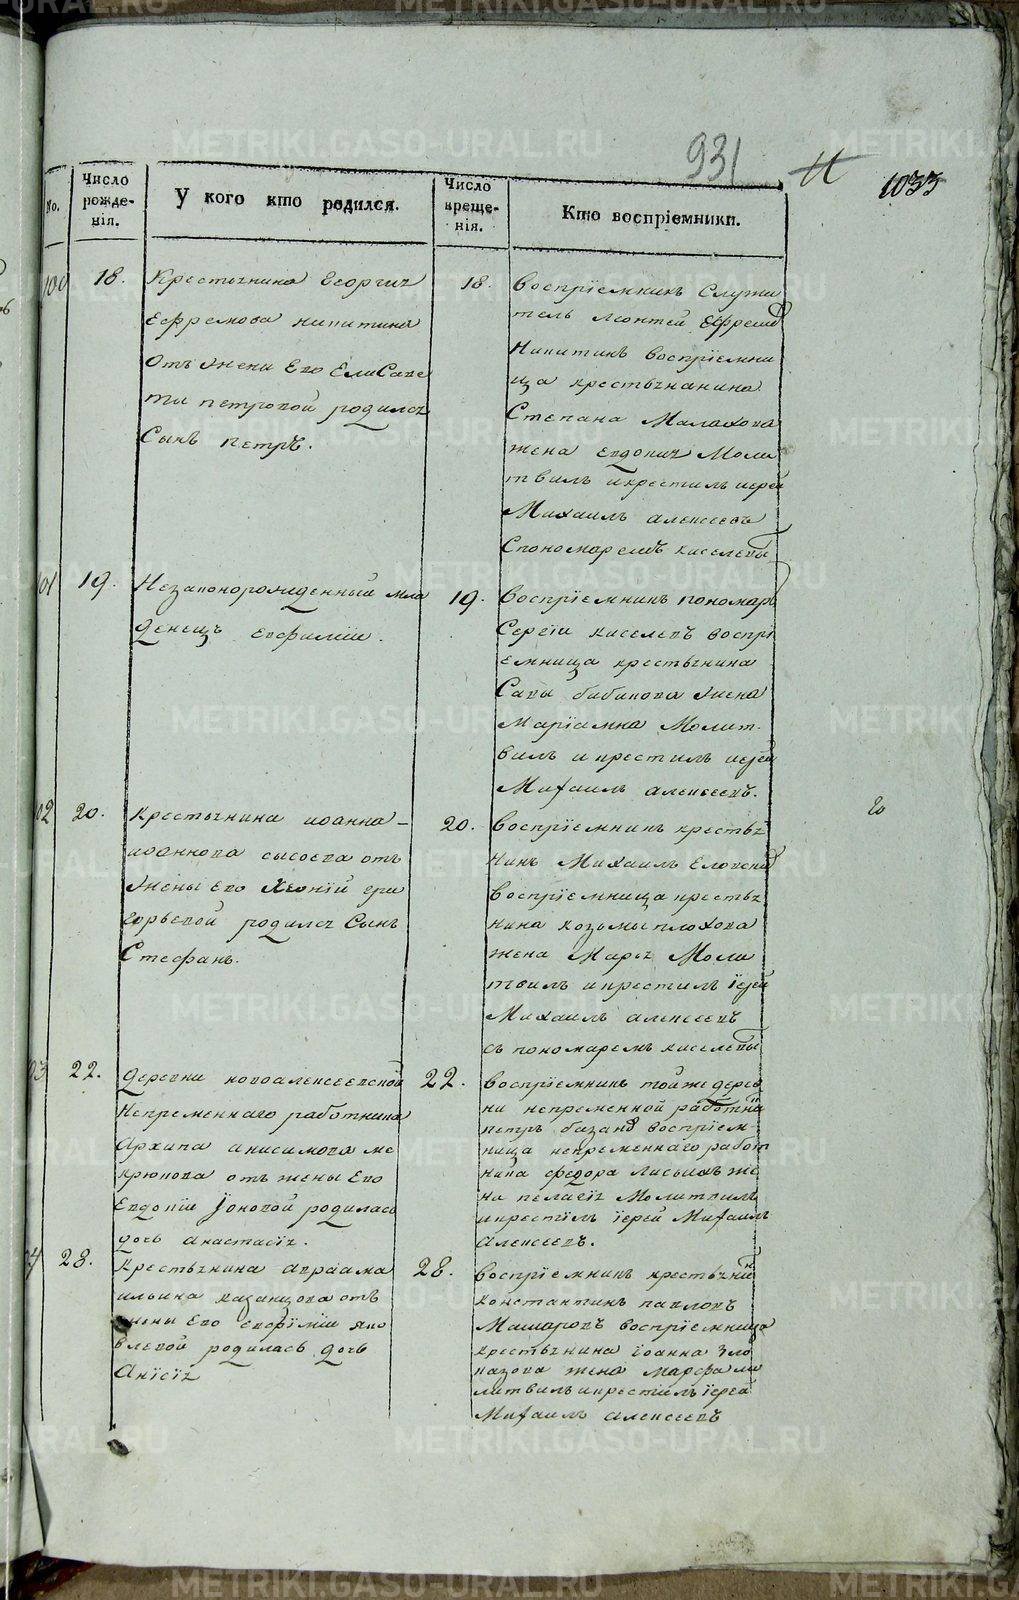 931
1033
No.
Число рожде-нія.
У кого кто родился.
Число креще-нія.
Кто воспріемники.
100
18.
Крестьянина Георгия
Ефремова Никитина
отъ жены Его Елисаве
ты Петровой родился
Сынъ Петръ.
18.
Воспріемникъ Служи
тель Леонтей Ефремов
Никитинъ воспріемни
ца крестьянанина
Степана Малахова
жена Евдокия Моли
твилъ и крестилъ иерей
Михаилъ Алексеевъ
С пономаремъ Киселевы
101
19.
Незаконорожденный мла
денецъ Евфимии.
19.
Воспріемникъ пономарь
Сергіи Киселевъ воспрі
емница крестьянина
Савы Бабинова жена
Маріамна Молит-
вилъ и крестилъ иерей
Михаилъ Алексеевъ.
102
20.
Крестьянина Иоанна
Иоаннова Сысоева отъ
жены Его Хеоніи Гри
горьевой родился Сынъ
Стефанъ.
20.
Воспріемникъ крестья
нинъ Михаилъ Еловски
Воспріемница крестья
нина Козьмы Плохова
жена Марья Моли
твилъ и крестилъ іерей
Михаилъ Алексеевъ
съ пономаремъ Киселевы
20
103
22.
Деревни Новоалексеевской
Непременнаго работника
Архипа Анисимова Ме
крюкова отъ жены Его
Евдокіи Іоновой родилась
дочь Анастасія.
22.
Воспріемникъ тойже дерев
ни непременной работни
Петръ Базано воспріем-
ница непременнаго работ
ника Федора Лисьихъ же
на Пелагія Молитвилъ
и крестилъ іерей Михаилъ
Алексеевъ.
104
28.
Крестьянина Авраама
Ильина Казанцова отъ
жены Его Евфіміи Яко
влевой родилась дочь
Анісія
28.
Воспріемникъ крестьяни
Константинъ Павловъ
Мамаровъ воспріемница
Крестьянина Іоанна Зло
казова жена Марфа Мо
литвилъ и крестилъ іерей
Михаилъ Алексеевъ
METRIKI.GASO-URAL.RU